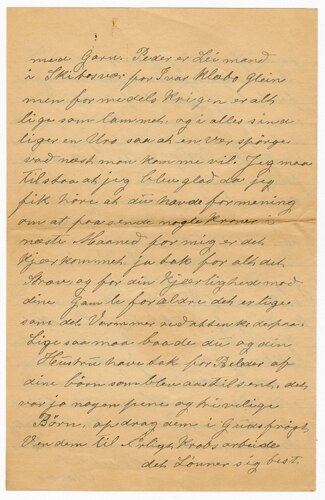 med Garn. Peder er Leiemand
i Skibsvær for Ivar Klæbo Glein
men formedels Krigen er alt
ligesom lammet, og i alles sind
liger en Uro saa at en vær spörge
vad næst mon komme vil. Jeg maa
tilstaa at jeg blev glad da jeg
fik höre at du havde formening
om at paasende nogle Kroner i
næste Maaned for mig er det
kjærkommet, ja tak for alt det
Stræv, og for din Kjærlighed mod
dine Gamle forældre det er lige
som det Varmmer ved at tenke derpaa.
Lige saa maa baade du og din
Hustru have tak for Beleder af
dine börn som blev os tilsent, det
var jo nogen pene og trivelige
Börn, opdrag dem i Gudsfrögt,
Ven dem til Ærligt, Krabs arbeide
det Lönner sig best.